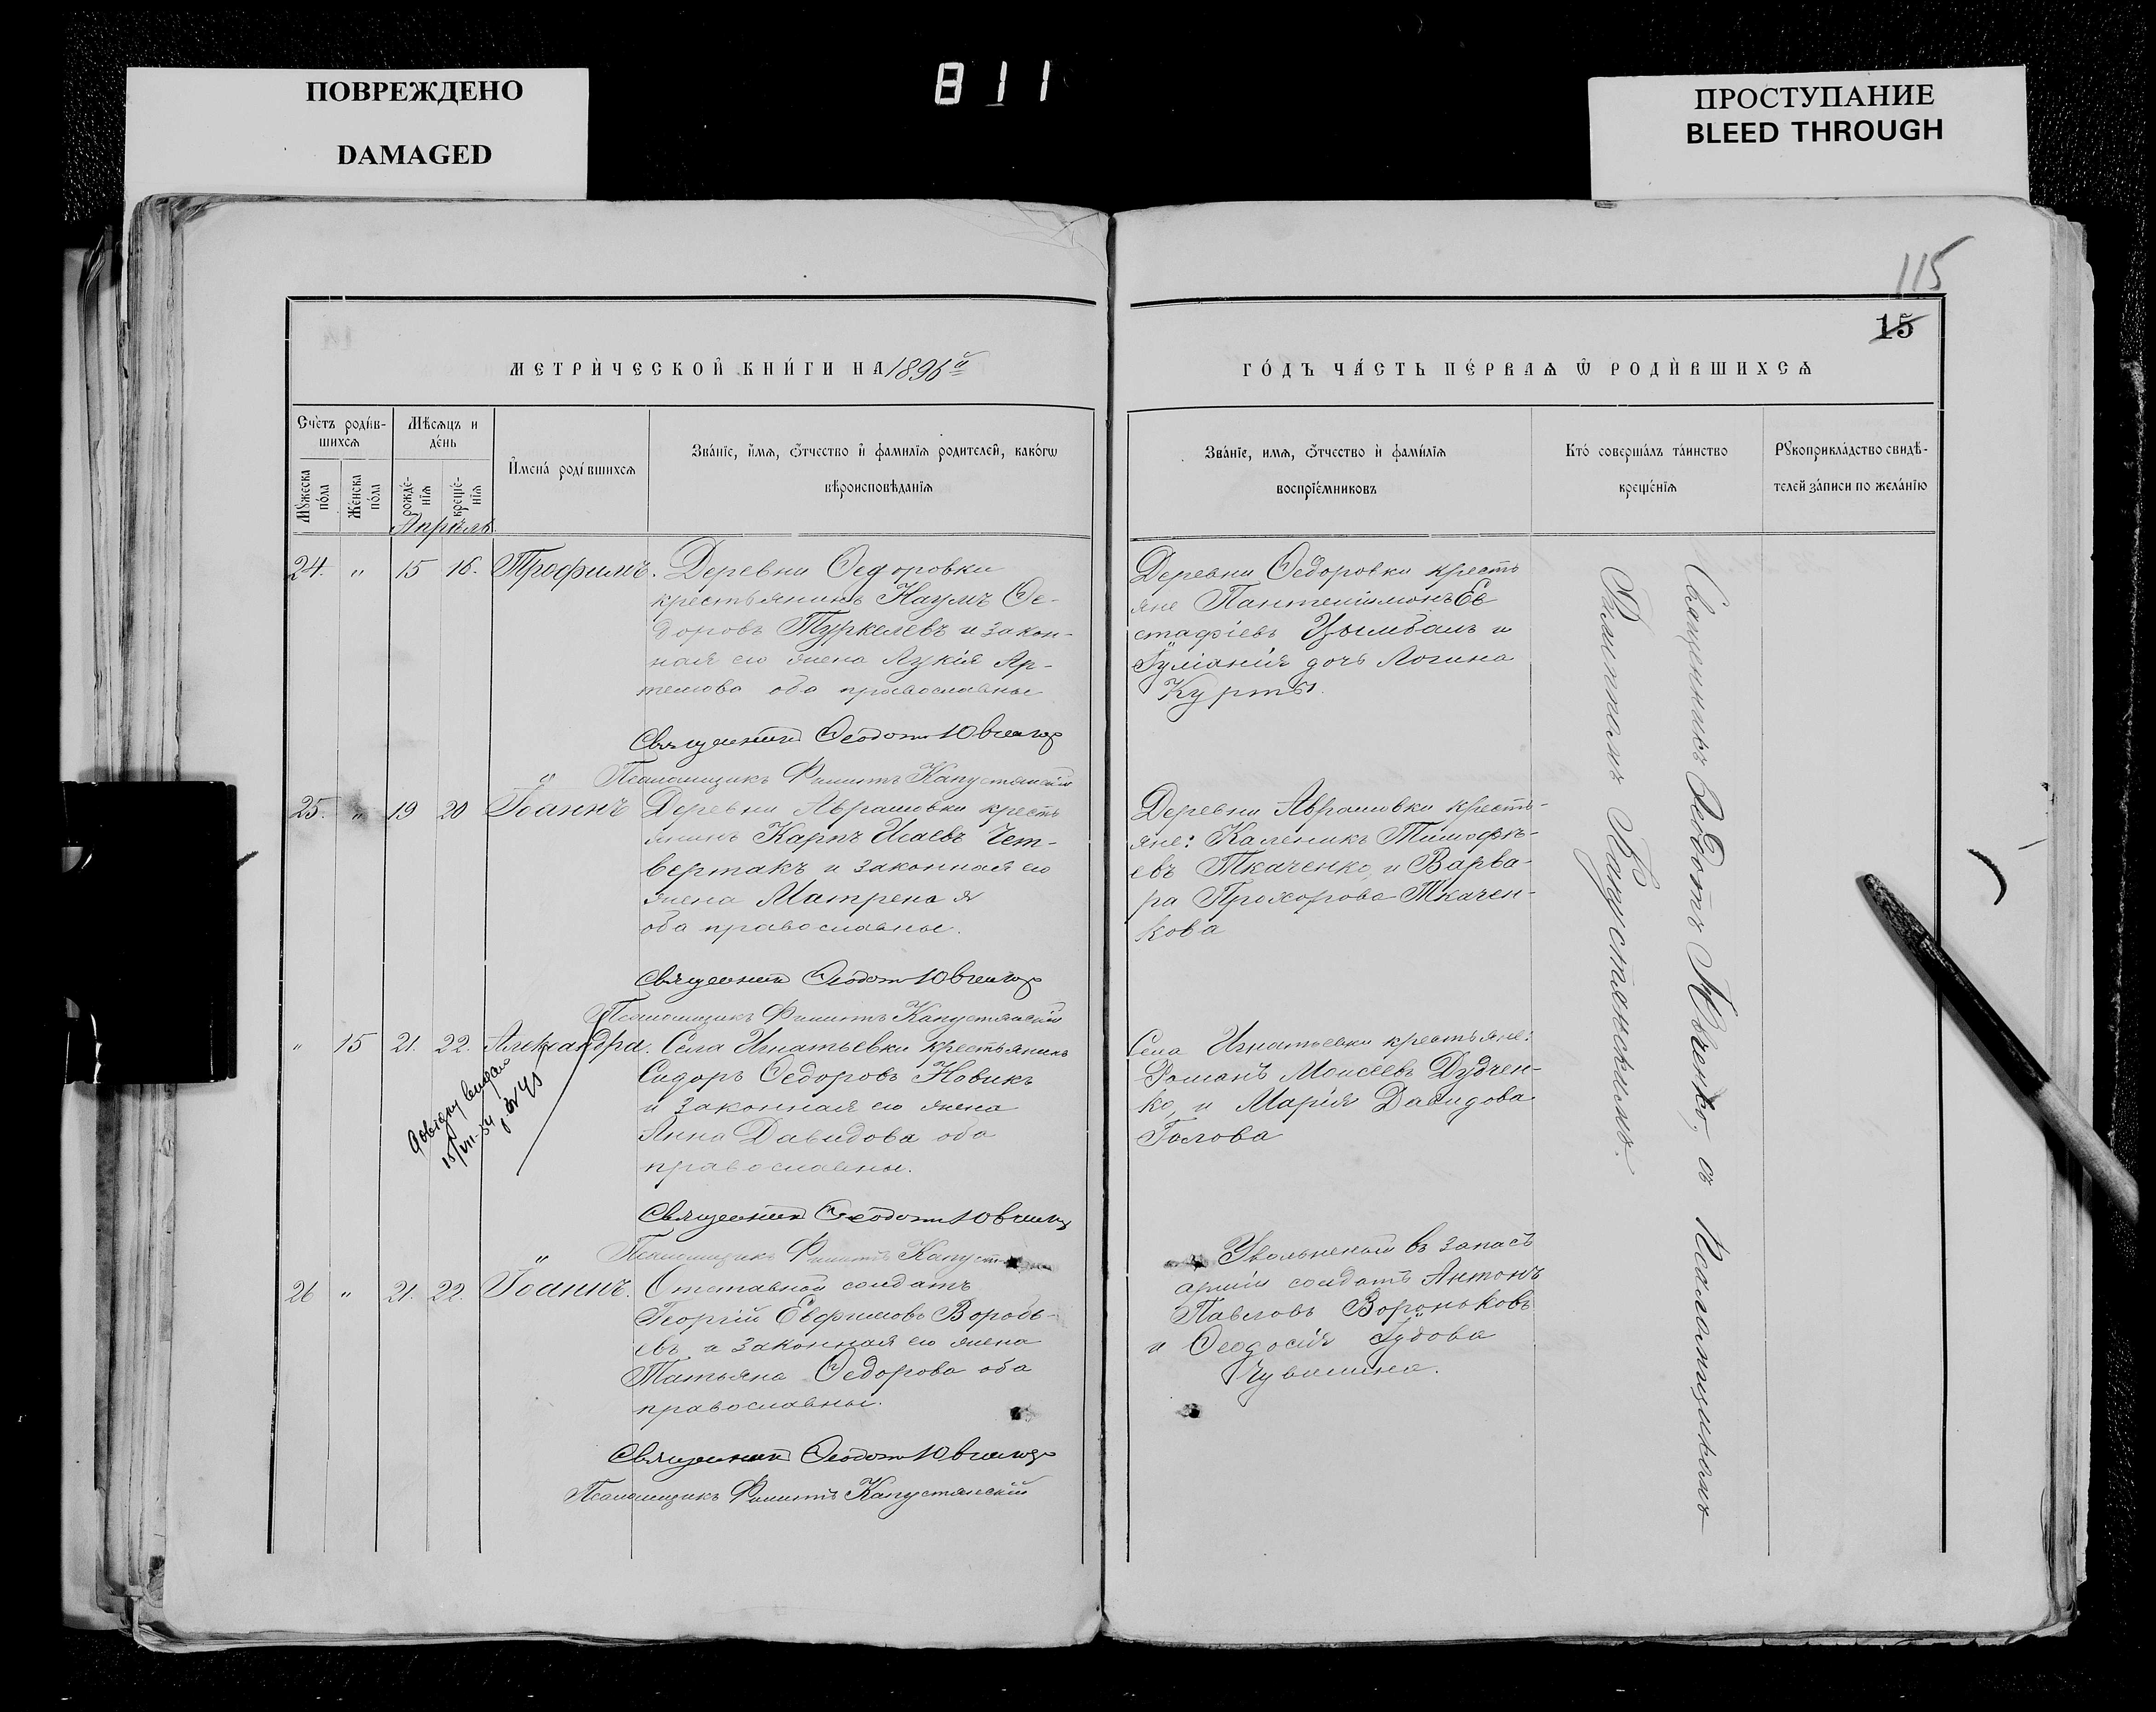 ПОВРЕЖДЕНО
DAMAGED
811
ПРОСТУПАНИЕ
BLEED THROUGH
115
15
МЕТРИ́ЧЕСКОЙ КНИ́ГИ НА 1896й
ГО́ДЪ ЧА́СТЬ ПЕ́РВАѦ Ѿ РОДИ́ВШИХСѦ
Сче́тъ роди́в-
шихсѧ
Мѣсѧцъ и
де́нь
Мꙋжеска
по́ла
Же́нска
по́ла
рожде́-
нїѧ
креще́-
нїѧ
И҆мена́ роди́вшихсѧ
Зва́нїе, и҆мѧ, ѻ҆тчество и҆ фамилїѧ родителей, како́гѡ
вѣроисповѣданїѧ
Зва́нїе, имѧ, ѻ҆тчество и҆ фами́лїѧ
воспрїе́мниковъ
Кто́ соверша́лъ та́инство
креще́нїѧ
Рꙋкоприкла́дство свидѣ-
телей за́писи по жела́нїю
Апрѣль
24. " 15 16. Трофимъ. Деревни Ѳедоровки
крестьянинъ Наумъ Ѳе-
доровъ Туркелевъ и закон-
ная его жена Лукія Ар-
темова оба православные
Священникъ Ѳеодотъ Ювченко
Псаломщикъ Филиппъ Капустянскій
Деревни Ѳедоровки кресть
яне Пантелимонъ Ев
стафіевъ Цымбалъ и
Іуліанія дочь Логина
Курты.
25. " 19 20 Іоаннъ Деревни Аврамовки кресть
янинъ Карпъ Исаевъ Чет-
вертакъ и законная его
жена Матрена
оба православные.
Священникъ Ѳеодотъ Ювченко
Псаломщикъ Филиппъ Капустянскій
Деревни Аврамовки кресть-
яне: Каленикъ Тимофѣ-
евъ Ткаченко, и Варва-
ра Прохорова Ткачен-
кова
" 15 21. 22. Александра. Села Игнатьевки крестьянинъ
Сидоръ Ѳедоровъ Новикъ
и законная его жена
Анна Давидова оба
православны.
Священникъ Ѳеодотъ Ювченко
Псаломщикъ Филиппъ Капустянскій
Села Игнатьевки крестьяне:
Романъ Моисеевъ Дудчен-
ко, и Марія Давидова
Голова
26 " 21. 22. Іоаннъ. Отставной солдатъ
Георгій Евфимовъ Воробь-
евъ и законная его жена
Татьяна Ѳедорова оба
православные.
Священникъ Ѳеодотъ Ювченко
Псаломщикъ Филиппъ Капустянскій
Увольненный въ запасъ
арміи солдатъ Антонъ
Павловъ Вороньковъ
и Ѳеодосія
Священникъ Ѳеодотъ Ювченко, съ Псаломщикомъ
Филиппомъ Капустянскимъ.